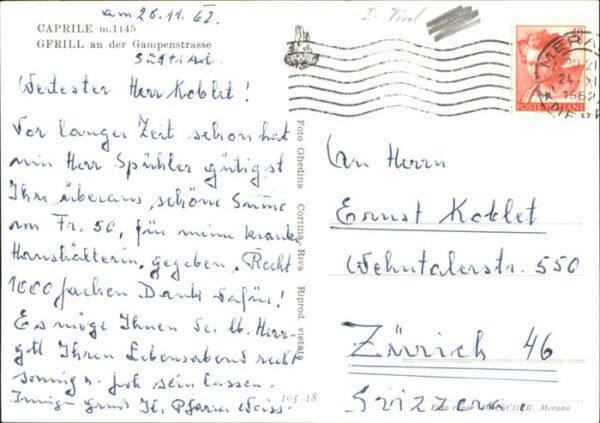 am 26.11.62.
CAPRILE m.1145
GFRILL an der Gampenstrasse
Südtirol.
Wertester Herr Koblet!
Vor langer Zeit schon hat
mir Herr Spühler gütigst
Ihre überaus schöne Summe
von Fr. 50, für meine kranke
Haushälterin, gegeben. Recht
1000 fachen Dank dafür!
Es möge Ihnen der lb. Herr-
gott Ihren Lebensabend recht
sonnig u. froh sein lassen.
Innige Pfarrer Weiss.
Foto Ghedina Cortina-Riva Riprod. vietata
105 18
I- Tirol
MERANO
24 XI
1962
POSTE ITALIANE
An Herrn
Ernst Koblet
Wehntalerstr. 550
Zürich 46
Svizzera
Merano